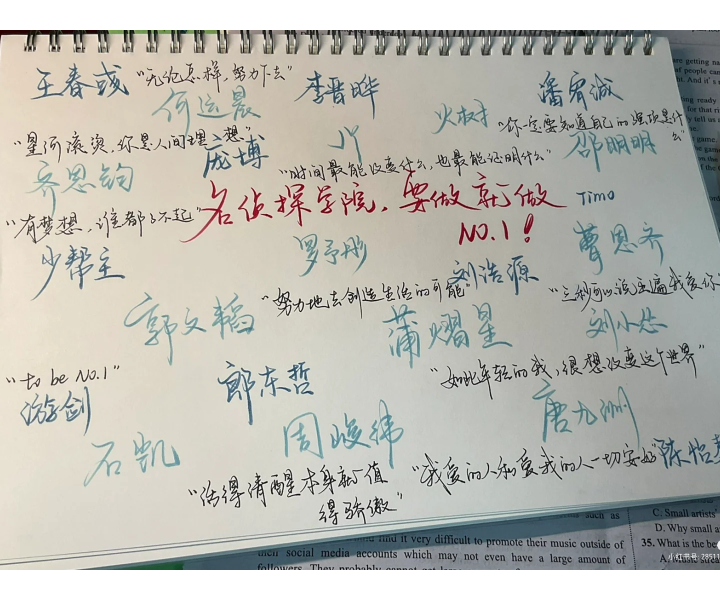 王春彧
"无论怎样，努力下去"
李晋晔
潘宥诚
何运晨
火树
"你一定要知道自己的强项是什么"
"星河滚烫，你是人间理想"
庞博
JY
邵明明
"时间最能改变什么，也最能证明什么"
齐思钧
"有梦想，谁都了不起"
名侦探学院，要做就做
NO.1！
Timo
少帮主
罗予彤
曹恩齐
刘浩源
"努力地去创造生活的可能"
"三秒可以说三遍我爱你
郭文韬
蒲熠星
刘小怂
"to be No.1"
郎东哲
"如此年轻的我，很想改变这个世界"
石凯
周峻纬
唐九洲
"活得清醒本身就值
得骄傲"
"我爱的人和爱我的人一切安好"
陈怡
such as
find it very difficult to promote their music outside of
their social media accounts which may not even have a large amount of
C. Small artists'
D. Why small a
35. What is the be
小红书号: 28511